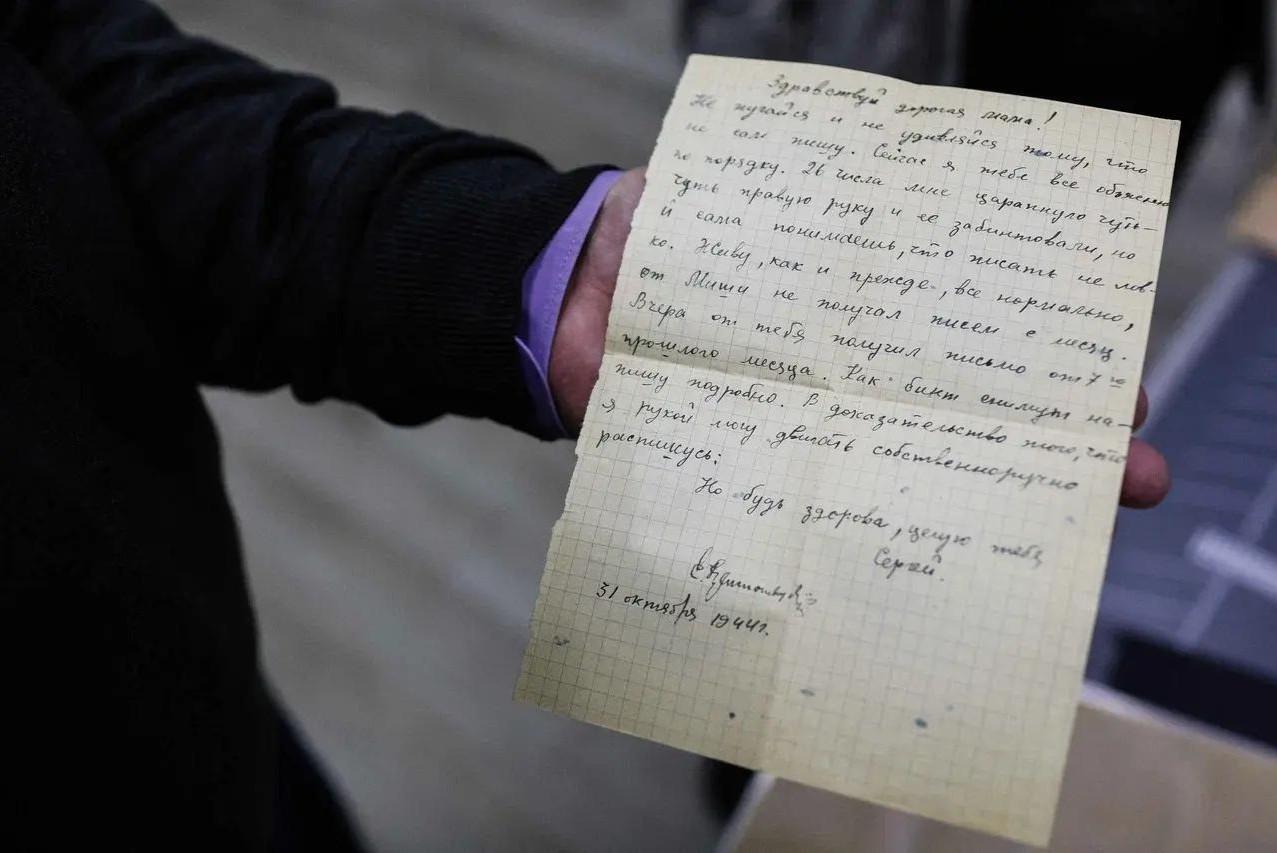 Здравствуй дорогая мама!
Не пугайся и не удивляйся тому, что
не сам пишу. Сейчас я тебе все объясню
по порядку. 26 числа мне царапнуло чуть-
чуть правую руку и ее забинтовали, но
й сама понимаешь, что писать не лов-
ко. Живу, как и прежде, все нормально,
от Миши не получал писем с месяц.
Вчера от тебя получил письмо от 7го
прошлого месяца. Как бинт снимут на-
пишу подробно. В доказательство того, что
я рукой могу двигать собственноручно
распишусь:
Но будь здорова, целую тебя
Сергей.
31 октября 1944г.